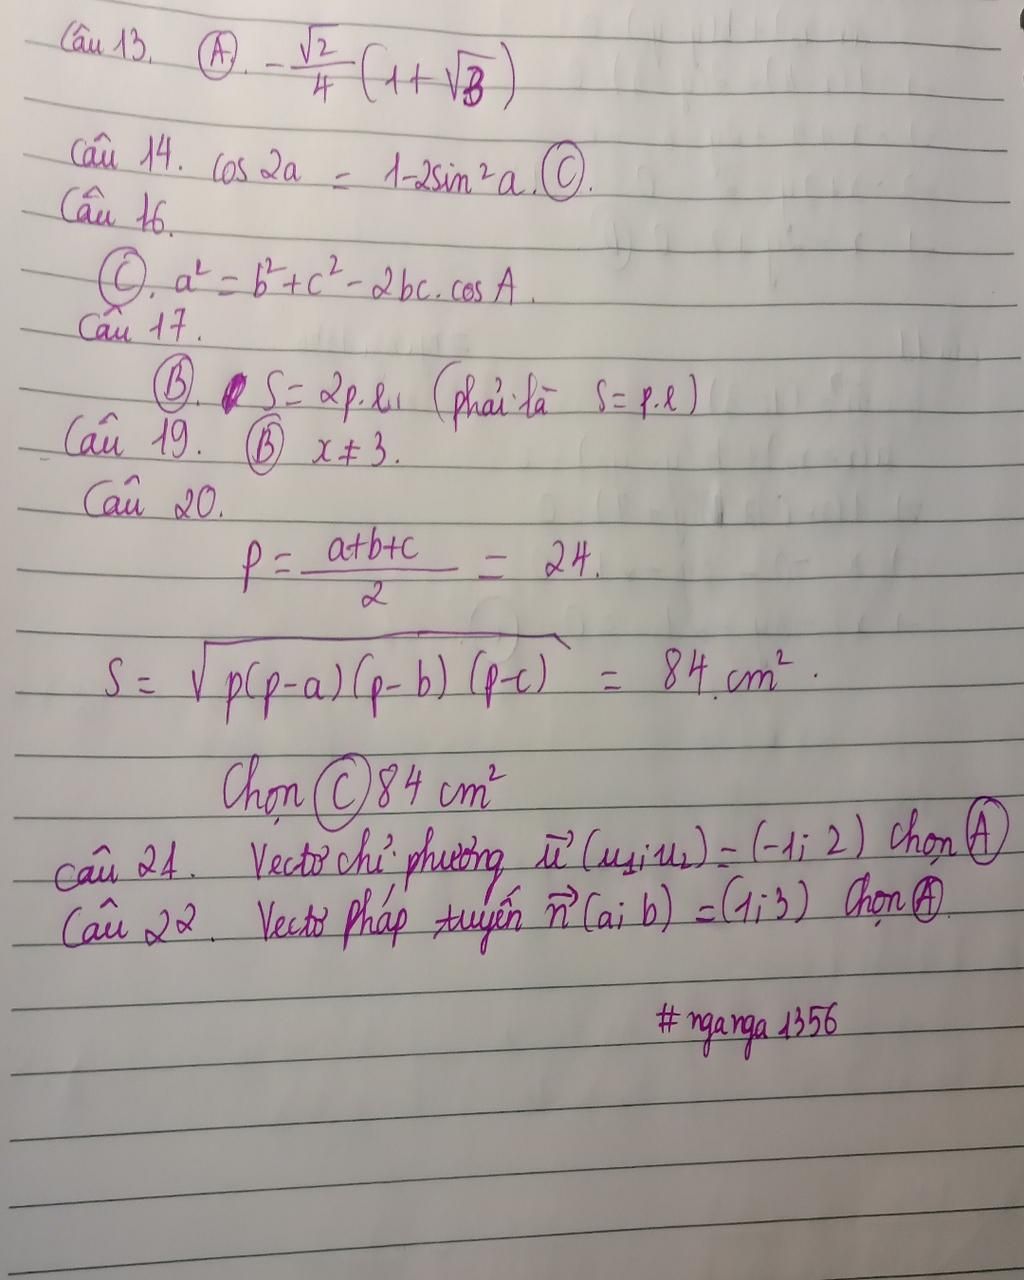 Câu 13. (A). -√2/4 (1+√3)
Câu 14. cos 2a = 1-2sin²a. (C).
Câu 16.
(C). a² = b²+c²-2bc.cos A.
Câu 17.
(B). S = 2p.r. (phải là S = p.r)
Câu 19. (B) x ≠ 3.
Câu 20.
p = a+b+c/2 = 24.
S = √p(p-a)(p-b)(p-c) = 84 cm².
Chọn (C) 84 cm²
Câu 21. Vectơ chỉ phương u⃗ (u₁; u₂) = (-1; 2) Chọn (A)
Câu 22. Vectơ pháp tuyến n⃗ (a; b) = (1; 3) Chọn (A)
# nganga 1356